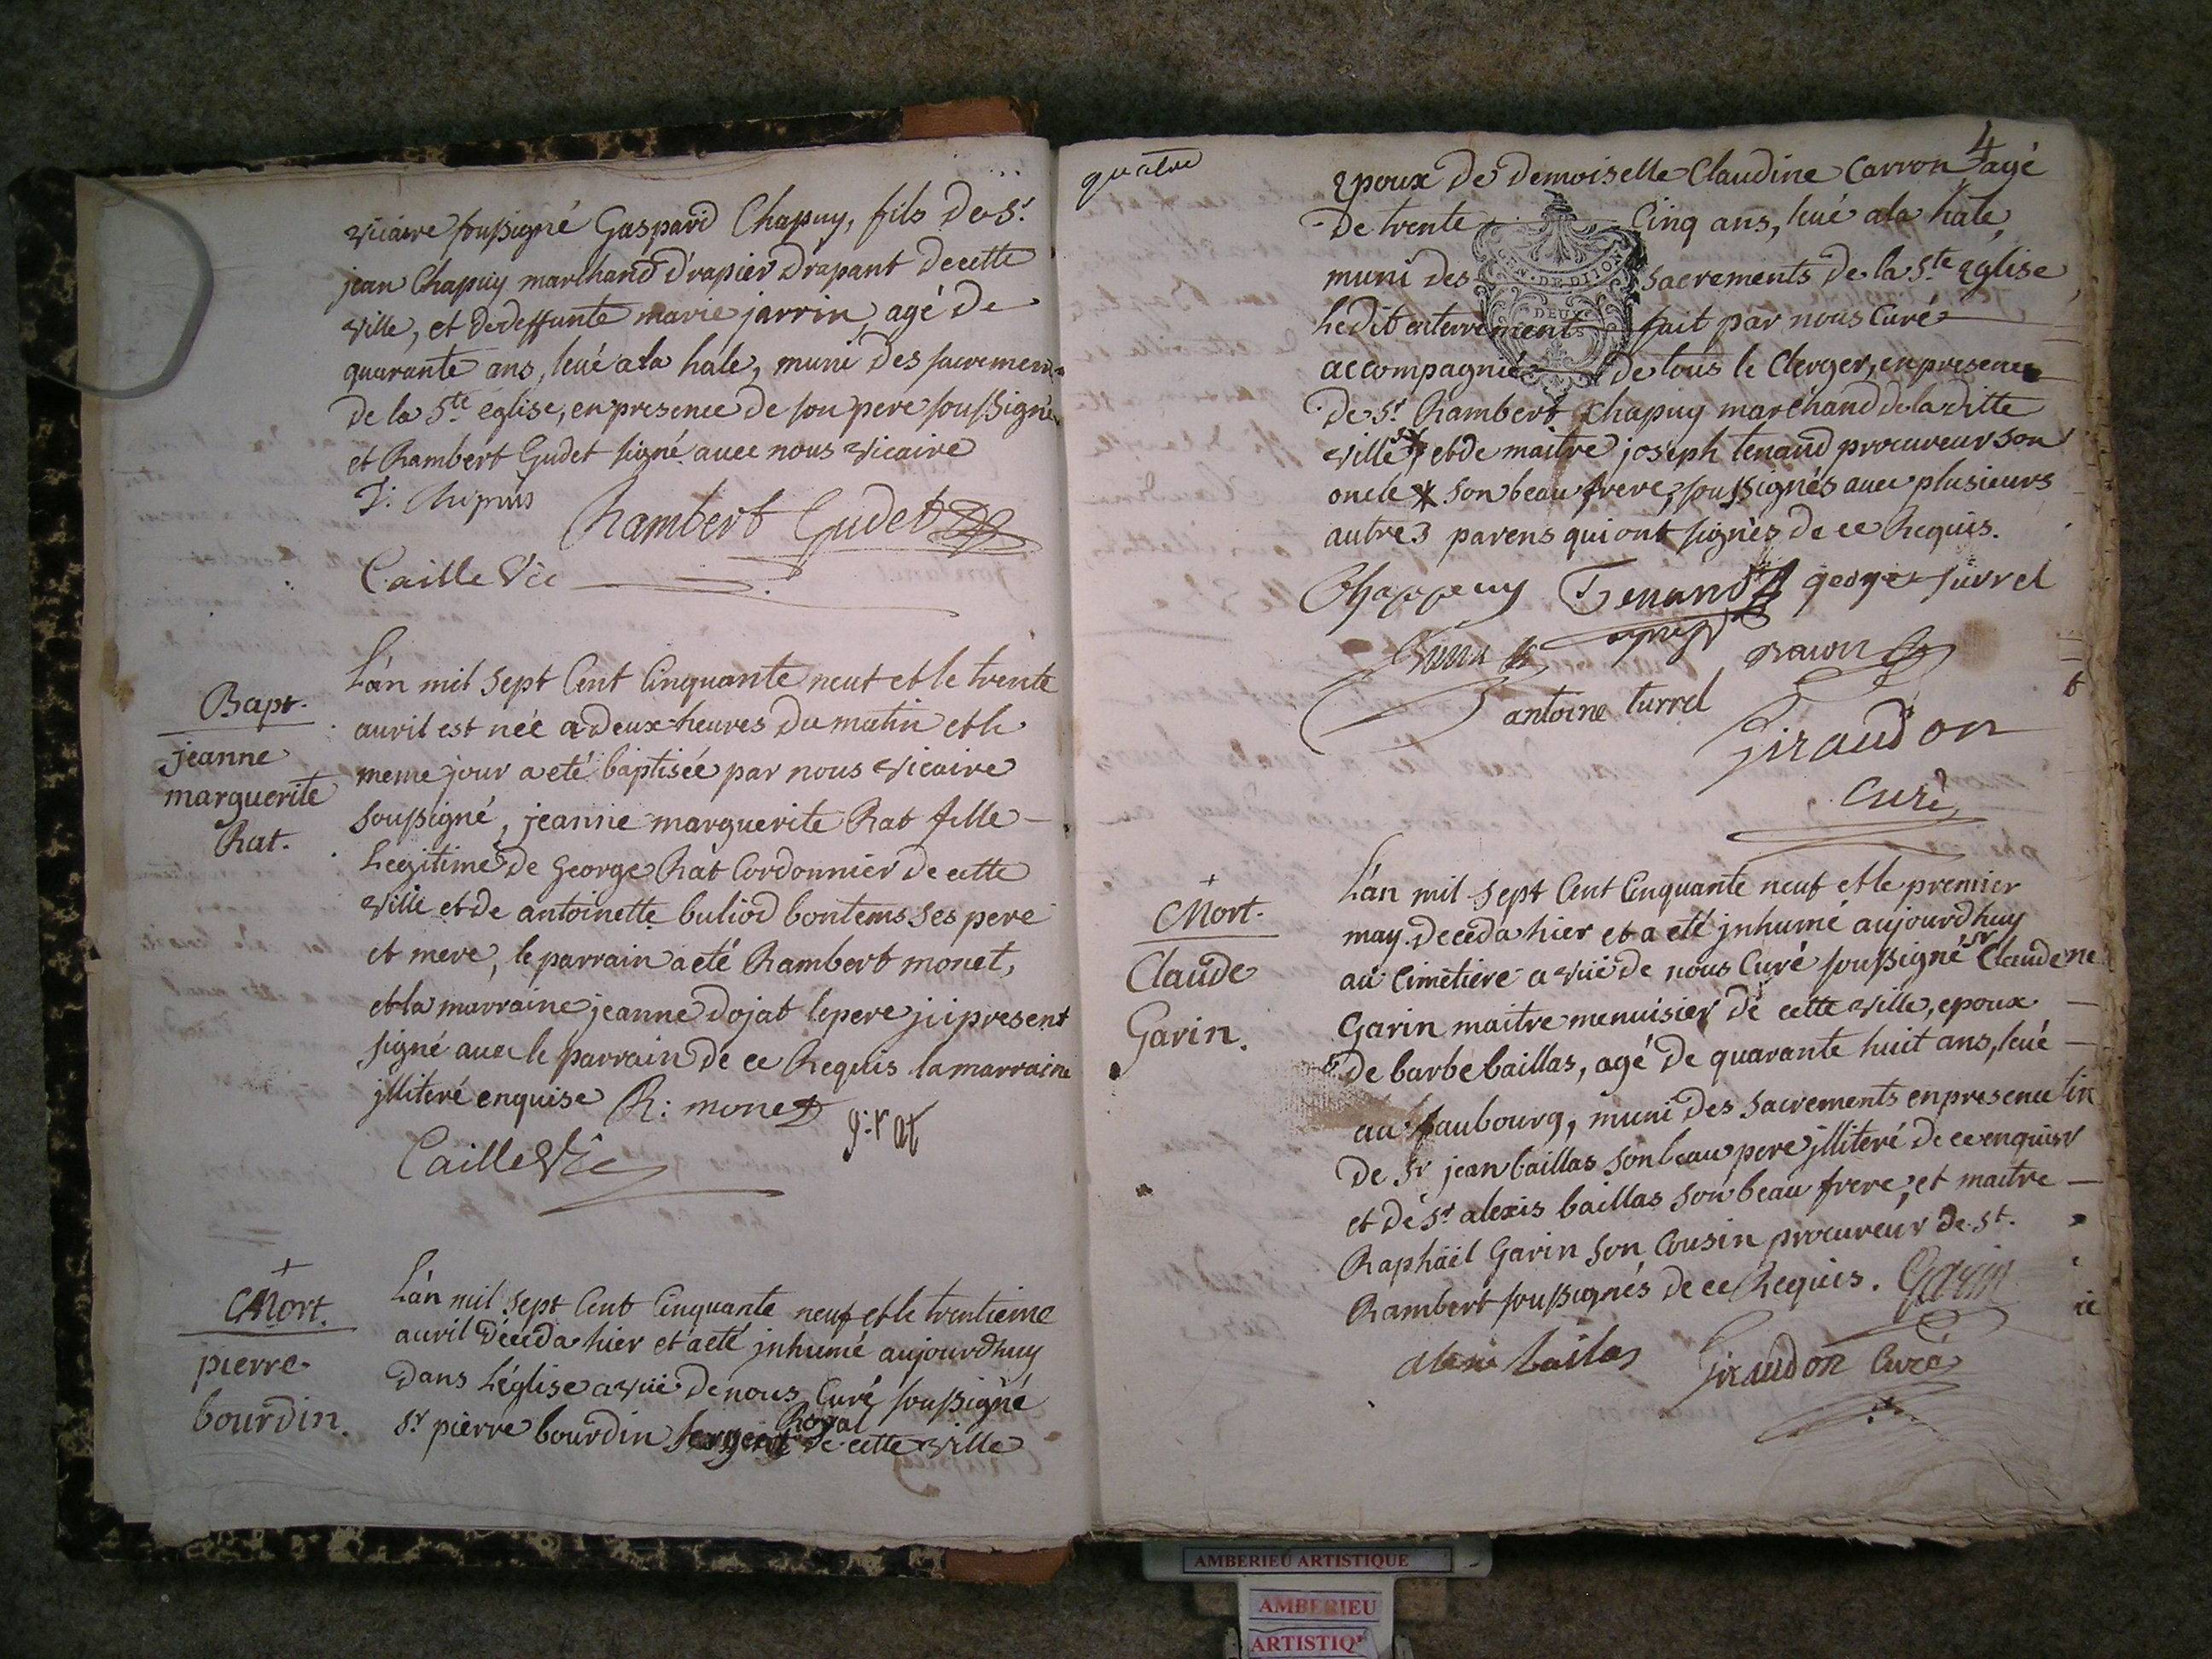 vicaire soussigné Gaspard Chapuy, fils de Sr.
jean Chapuy marchand drapier drapant de cette
ville, et de deffunte marie jarrin, agé de
quarante ans, leué a la hale, muni des sacremen
de la Ste église, en presence de son pere soussigné
et Rambert Gudet signé auec nous vicaire
Rambert Gudet
Caille Vic
Bapt.
jeanne
marguerite
Rat.
L'an mil sept Cent Cinquante neuf et le trente
auril est née a deux heures du matin et le
meme jour a eté baptisée par nous vicaire
soussigné, jeanne marguerite Rat fille
Legitime de George Rat Cordonnier de cette
ville et de antoinette buliod bontems ses pere
et mere, le parrain a eté Rambert monet,
et la marraine jeanne dojat le pere jci present
signé auec le parrain de ce Requis la marraine
jlliteré enquise R: monet
g: rat
Caille Vic
Mort.
pierre
bourdin.
L'an mil sept Cent Cinquante neuf et le trentieme
auril deceda hier et a eté jnhumé aujourdhuy
dans L'église a vüe de nous Curé soussigné
Sr pierre bourdin sergent Royal de cette ville
quatre
4
epoux de demoiselle Claudine Carron agé
de trente Cinq ans, leué a la hale,
muni des sacrements de la Ste Eglise
Ledit enterrement fait par nous Curé
accompagné de tous le Clerger, en presence
GEN. DE DIJON
DEUX
de Sr Rambert Chapuy marchand de la ditte
ville, et de maitre joseph tenand procureur son
oncle * son beau frere, soussignés auec plusieurs
autres parens qui ont signés de ce Requis.
Chappuy Tenand george turrel
antoine turrel
Giraudon
Curé
Mort.
Claude
Garin.
L'an mil sept Cent Cinquante neuf et le premier
may deceda hier et a eté jnhumé aujourdhuy
au Cimetiere a vüe de nous Curé soussigné Sr Claude
Garin maitre menuisier de cette ville, epoux
de barbe baillas, agé de quarante huit ans, leué
au faubourg, muni des sacrements en presence
de Sr jean baillas son beau pere jlliteré de ce enquis
et de Sr alexis baillas son beau frere, et maitre
Raphäel Garin son Cousin procureur de St.
Rambert soussignés de ce Requis. Garin
Giraudon Curé
AMBERIEU ARTISTIQUE
AMBERIEU
ARTISTIQ